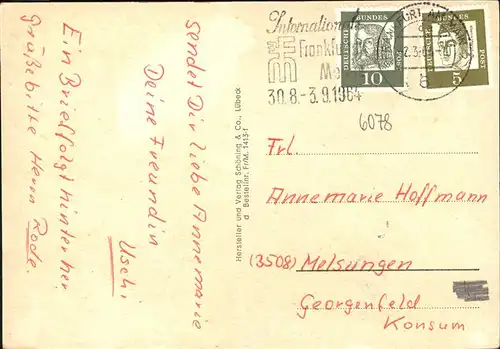 sendet Dir liebe Annemarie
Deine Freundin
Uschi
Ein Brief folgt hinterher
Grüße bitte Herrn Rode.
Hersteller und Verlag Schöning & Co., Lübeck
Bestellnr. Fr/M. 1413-f
Internationale
Frankfurter
Me
30.8.-3.9.1964
DEUTSCHE
BUNDES
POST
10
DEUTSCHE
BUNDES
POST
5
6078
Frl.
Annemarie Hoffmann
(3508) Melsungen
Georgenfeld
Konsum